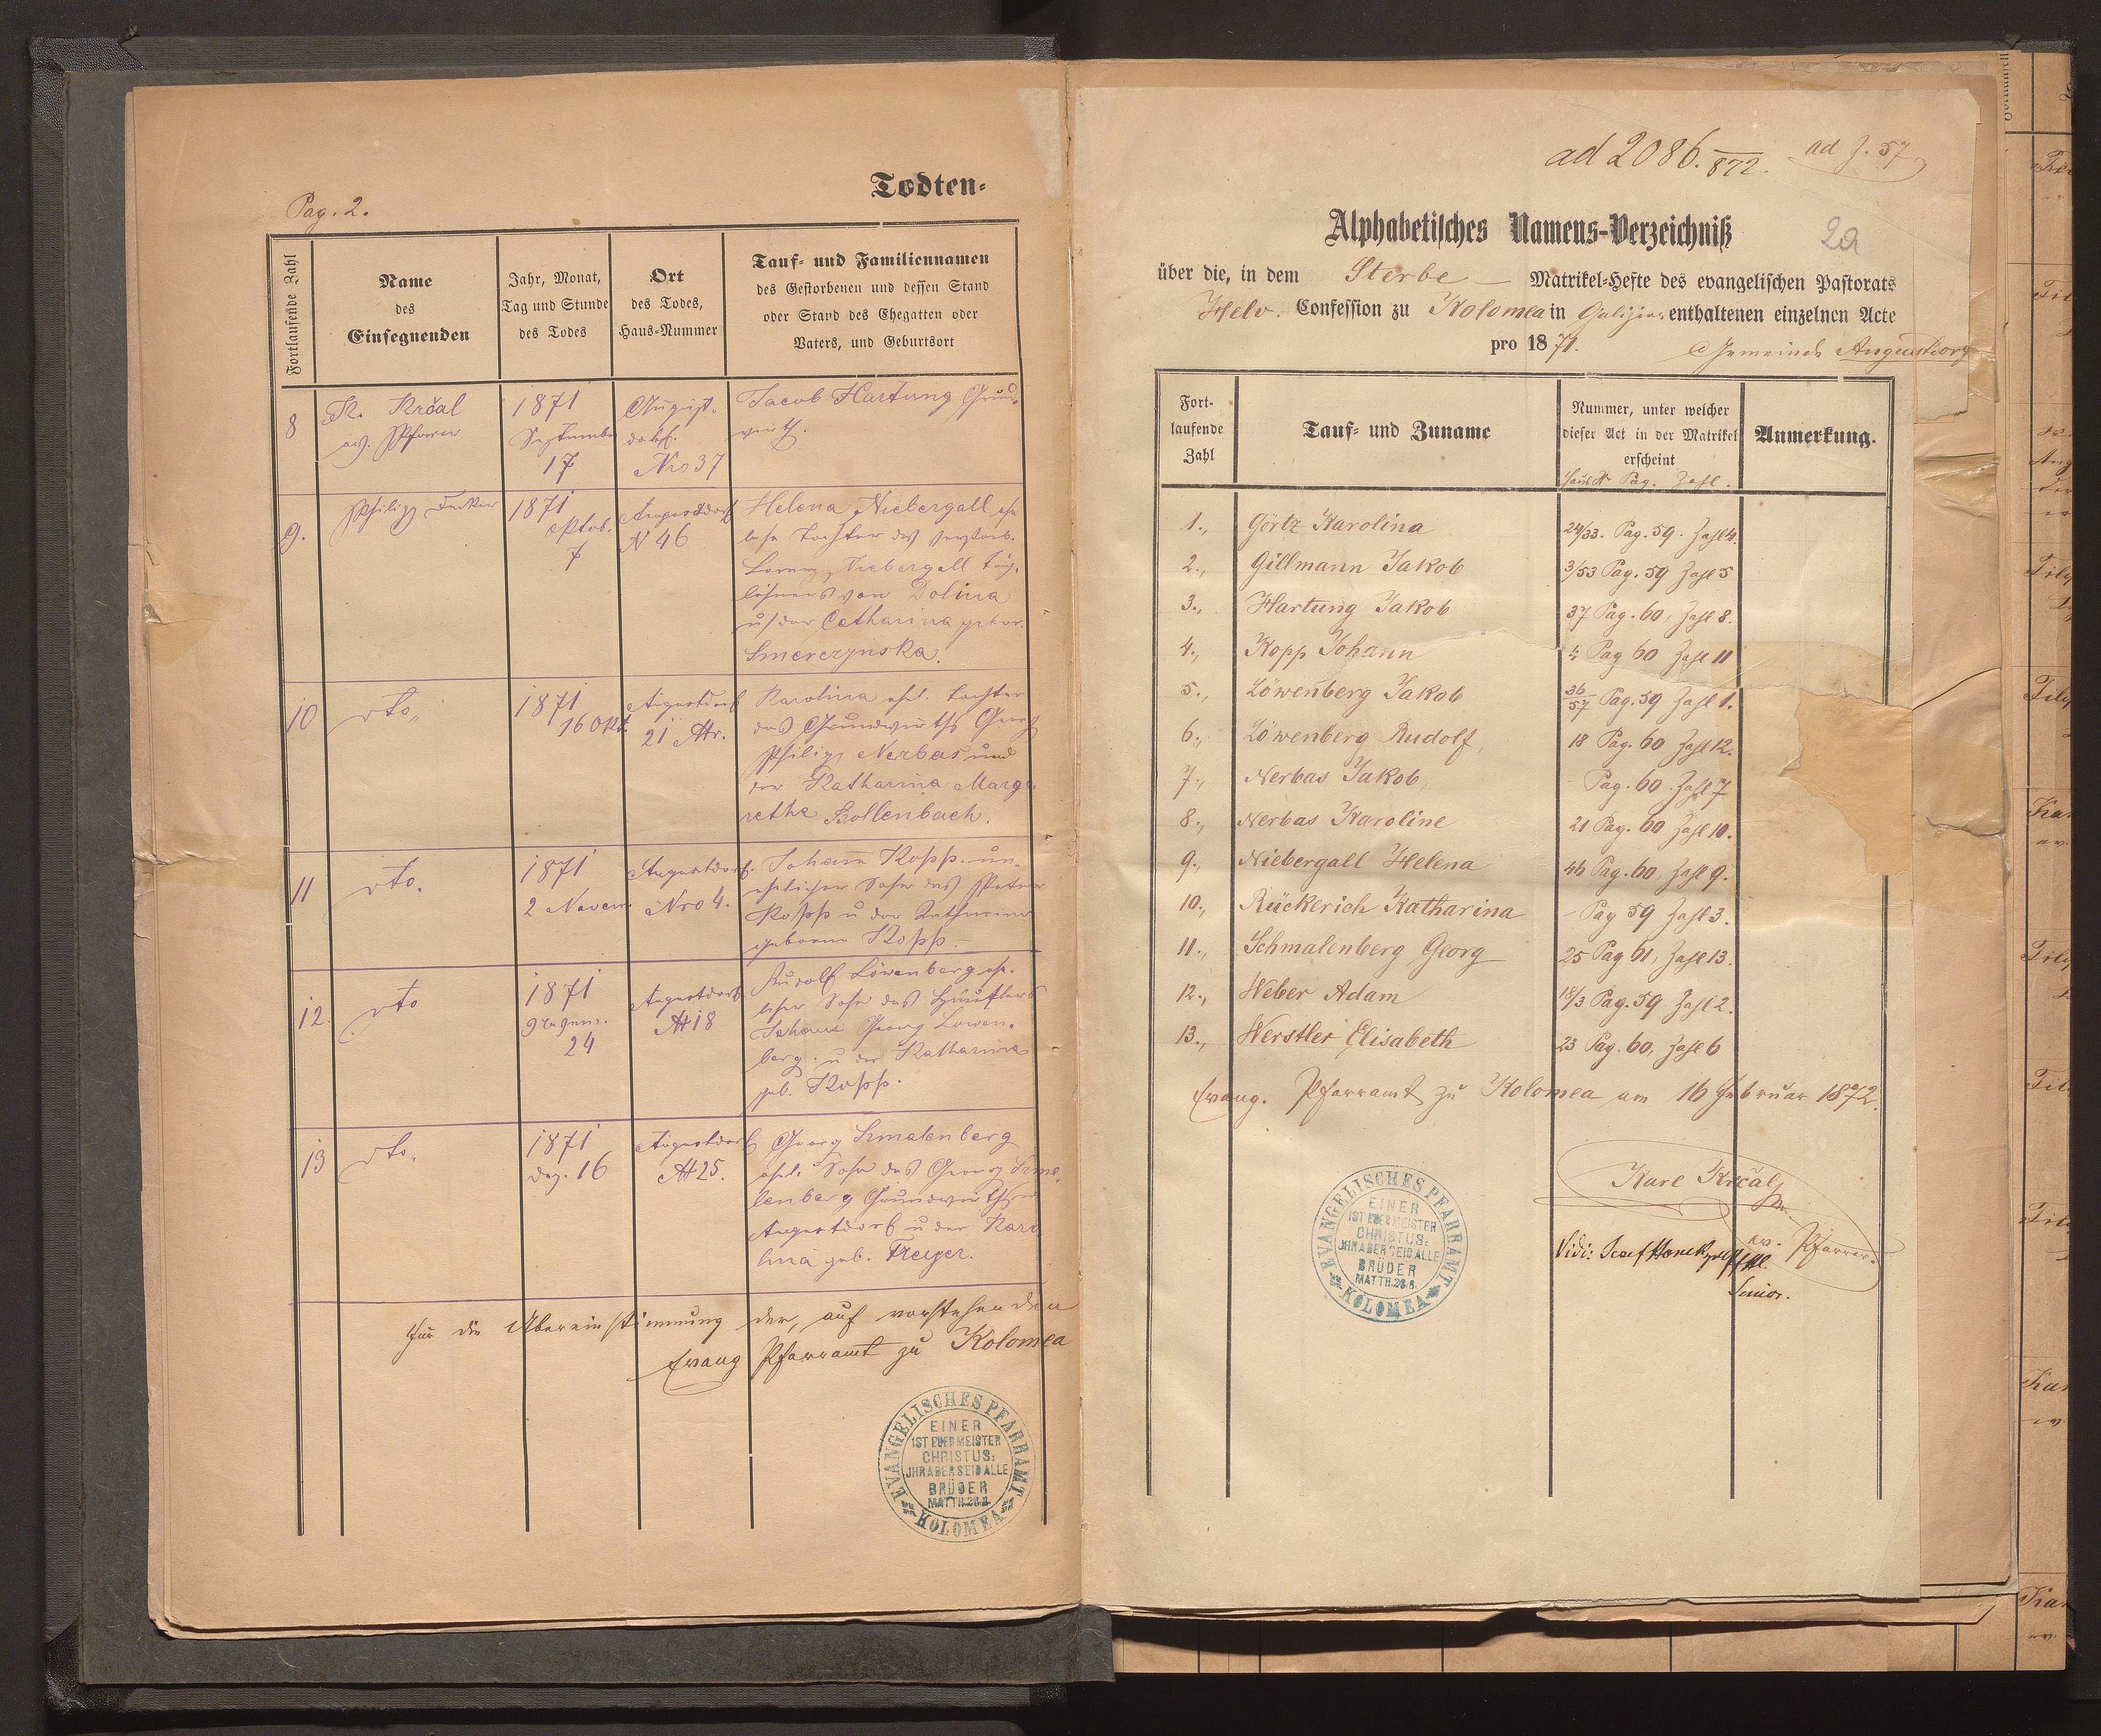 Pag. 2.
Todten-
Fortlaufende Zahl
Name
des
Einsegnenden
Jahr, Monat,
Tag und Stunde
des Todes
Ort
des Todes,
Haus-Nummer
Tauf- und Familiennamen
des Gestorbenen und dessen Stand
oder Stand des Ehegatten oder
Vaters, und Geburtsort
8
K. Krčal
ev. Pfarrer
1871
September
17
August-
dorf.
Nro 37
Jacob Hartung Grund-
wirth.
9.
Philipp Decker
1871
Oktob.
7
Augustdorf
N 46
Helena Niebergall ehe
liche Tochter des verstorb.
Lorenz Niebergall Tag-
löhners von Dolina
u/der Catharina gebor.
Smerczynska.
10
dto.
1871
16 Okt.
Augustdorf
21 Nr.
Karolina ehl. Tochter
des Grundwirths Georg
Philipp Nerbas und
der Katharina Marga
rethe Bollenbach.
11
dto.
1871
2 Novem.
Augustdorf.
Nro 4.
Johann Kopp un-
ehelicher Sohn des Peter
Kopp u der Katharina
geborne Kopp.
12.
dto
1871
24
Augustdorf
N 18
Rudolf Löwenberg ehe-
licher Sohn des
Johann Georg Löwen-
berg. u der Katharina
geb. Kopp.
13
dto.
1871
Dez. 16
Augustdorf
N 25.
Georg Smalenberg
ehel. Sohn des Georg Sma-
lenberg Grundwirths
Augustdorf u der Karo
lina geb. Freyer.
Für die Übereinstimmung der, auf vorstehenden
Evang Pfarramt zu Kolomea
EVANGELISCHES PFARRAMT
EINER
IST EUER MEISTER
CHRISTUS:
JHR ABER SEID ALLE
BRÜDER
MATTH. 23.8.
KOLOMEA
ad 2086. 872.
ad Z. 57
Alphabetisches Namens-Verzeichniß
2a
über die, in dem Sterbe- Matrikel-Hefte des evangelischen Pastorats
Helv. Confession zu Kolomea in Galizien enthaltenen einzelnen Acte
pro 1871.
Gemeinde Augustdorf
Fort-
laufende
Zahl
Tauf- und Zuname
Nummer, unter welcher
dieser Act in der Matrikel
erscheint
Haus N Pag. Zahl.
Anmerkung.
1., Görtz Karolina 24/33. Pag. 59. Zahl 4.
2., Gillmann Jakob 3/53 Pag. 59 Zahl 5
3., Hartung Jakob 37 Pag. 60, Zahl 8.
4., Kopp Johann 4 Pag 60 Zahl 11
5., Löwenberg Jakob 36/57 Pag. 59 Zahl 1.
6., Löwenberg Rudolf, 18 Pag. 60 Zahl 12.
7., Nerbas Jakob, - Pag. 60. Zahl 7
8., Nerbas Karoline 21 Pag. 60 Zahl 10.
9., Niebergall Helena 46 Pag. 60, Zahl 9.
10., Rückerich Katharina - Pag 59 Zahl 3.
11., Schmalenberg Georg 25 Pag 61, Zahl 13.
12., Weber Adam 18/3 Pag. 59 Zahl 2.
13., Werstler Elisabeth 23 Pag. 60, Zahl 6
Evang. Pfarramt zu Kolomea am 16 Februar 1872.
EVANGELISCHES PFARRAMT
EINER
IST EUER MEISTER
CHRISTUS:
JHR ABER SEID ALLE
BRÜDER
MATTH. 23.8.
KOLOMEA
Karl Krčal
ev. Pfarrer.
Vidi: Josef
Senior.